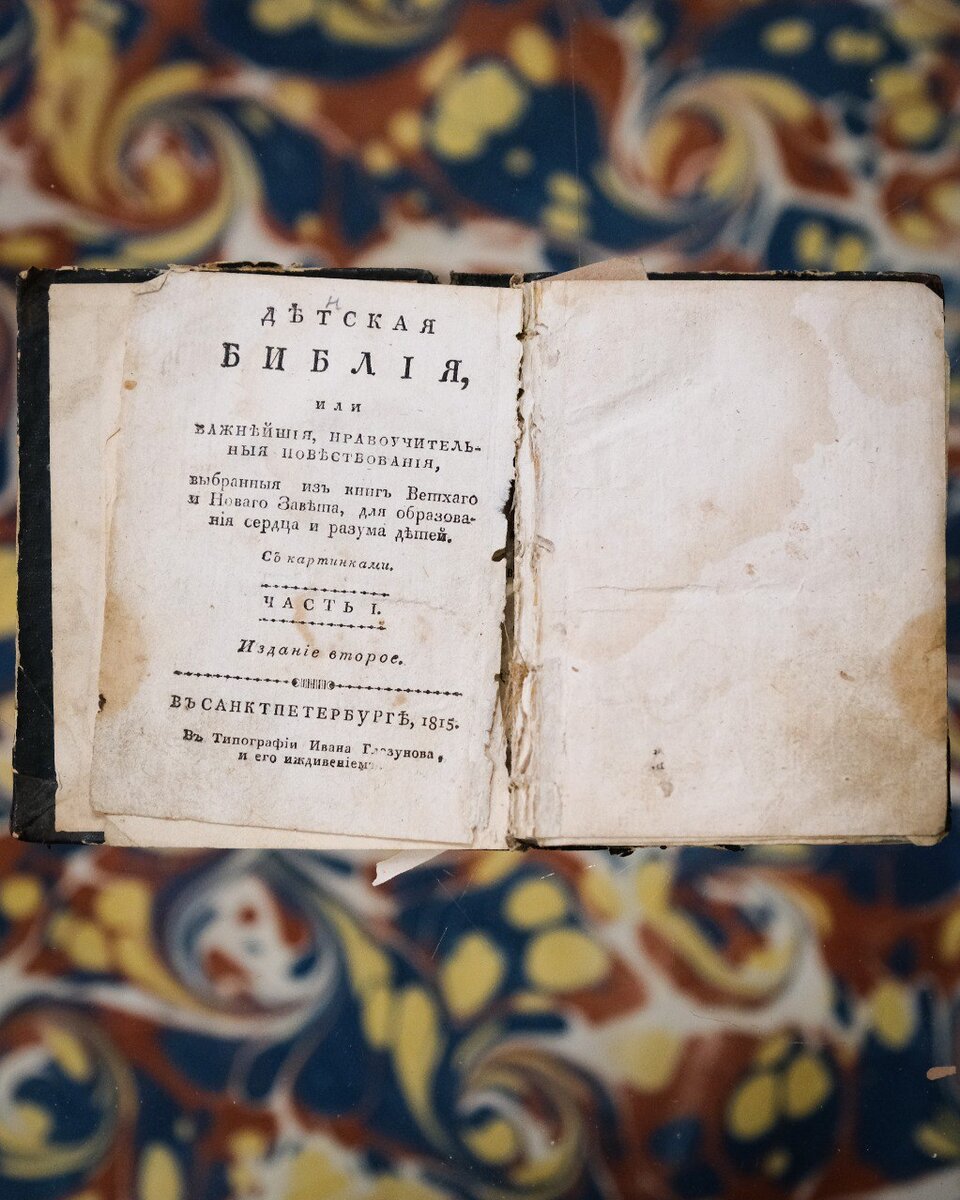 ДѢТСКАЯ
БИБЛІЯ,
ИЛИ
ВАЖНѢЙШІЯ, НРАВОУЧИТЕЛЬ-
НЫЯ ПОВѢСТВОВАНІЯ,
выбранныя изъ книгъ Ветхаго
и Новаго Завѣта, для образова-
нія сердца и разума дѣтей.
Съ картинками.
ЧАСТЬ I.
Изданіе второе.
ВЪ САНКТПЕТЕРБУРГѢ, 1815.
Въ Типографіи Ивана Глазунова,
и его иждивеніемъ.